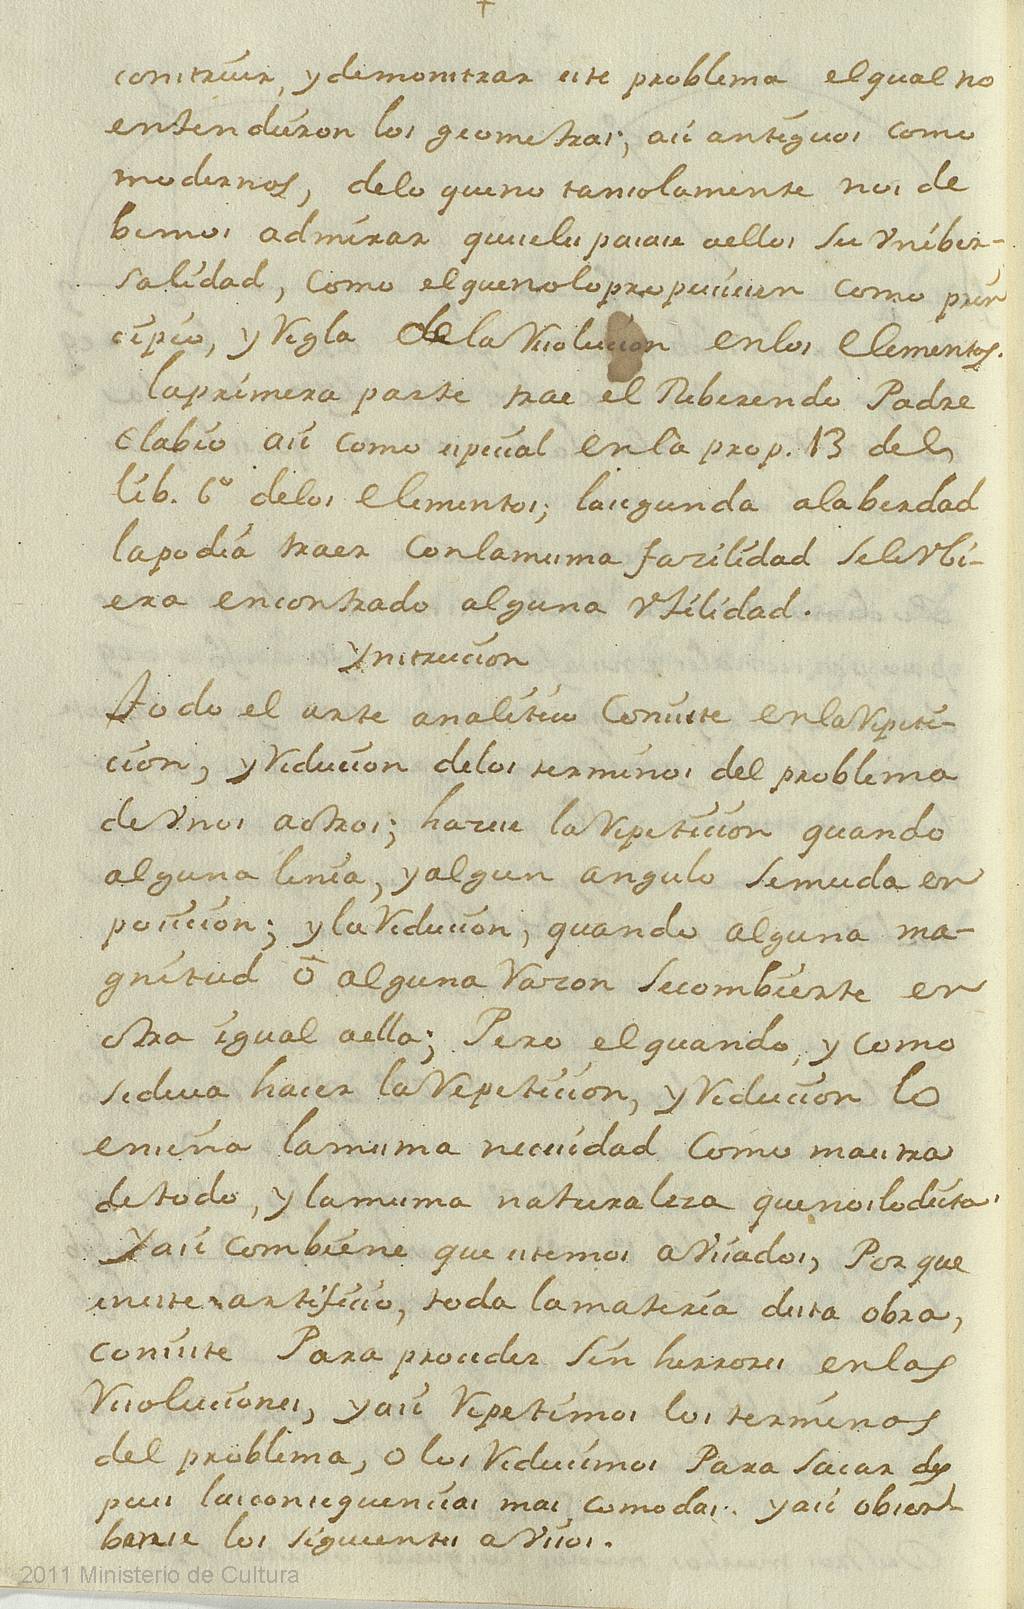 construir, y demonstrar este problema el qual no
entendieron los geometras; asi antiguos como
modernos, de lo que no tansolamente nos de
bemos admirar que se les pasase a ellos su Vniber-
salidad, como el que no lo propusiesen como prin
cipio, y Regla de la Resolucion en los Elementos.
la primera parte trae el Reberendo Padre
Clabio asi como especial en la prop. 13 del
lib. 6º de los Elementos; la segunda a la berdad
la podia traer con la misma fazilidad se le Vbi-
era encontrado alguna Vtilidad.
Ynstrucion
Todo el arte analitico Consiste en la Repeti-
cion, y Reducion de los terminos del problema
de Vnos a otros; hazese la Repeticion quando
alguna linea, y algun angulo se muda en
posicion; y la Reducion, quando alguna ma-
gnitud ô alguna Razon se combierte en
otra igual a ella; Pero el quando, y como
se deva hacer la Repeticion, y Reducion lo
enseña la misma necesidad como maestra
de todo, y la misma naturaleza que nos lo dicta.
Y asi combiene que estemos aVisados, Porque
en este artificio, toda la materia desta obra,
consiste Para proceder sin herrores en las
Resoluciones, y asi Repetimos los terminos
del problema, o los Reducimos Para sacar des
pues las consequencias mas comodas. y asi obser-
bense los siguientes aVisos.
2011 Ministerio de Cultura